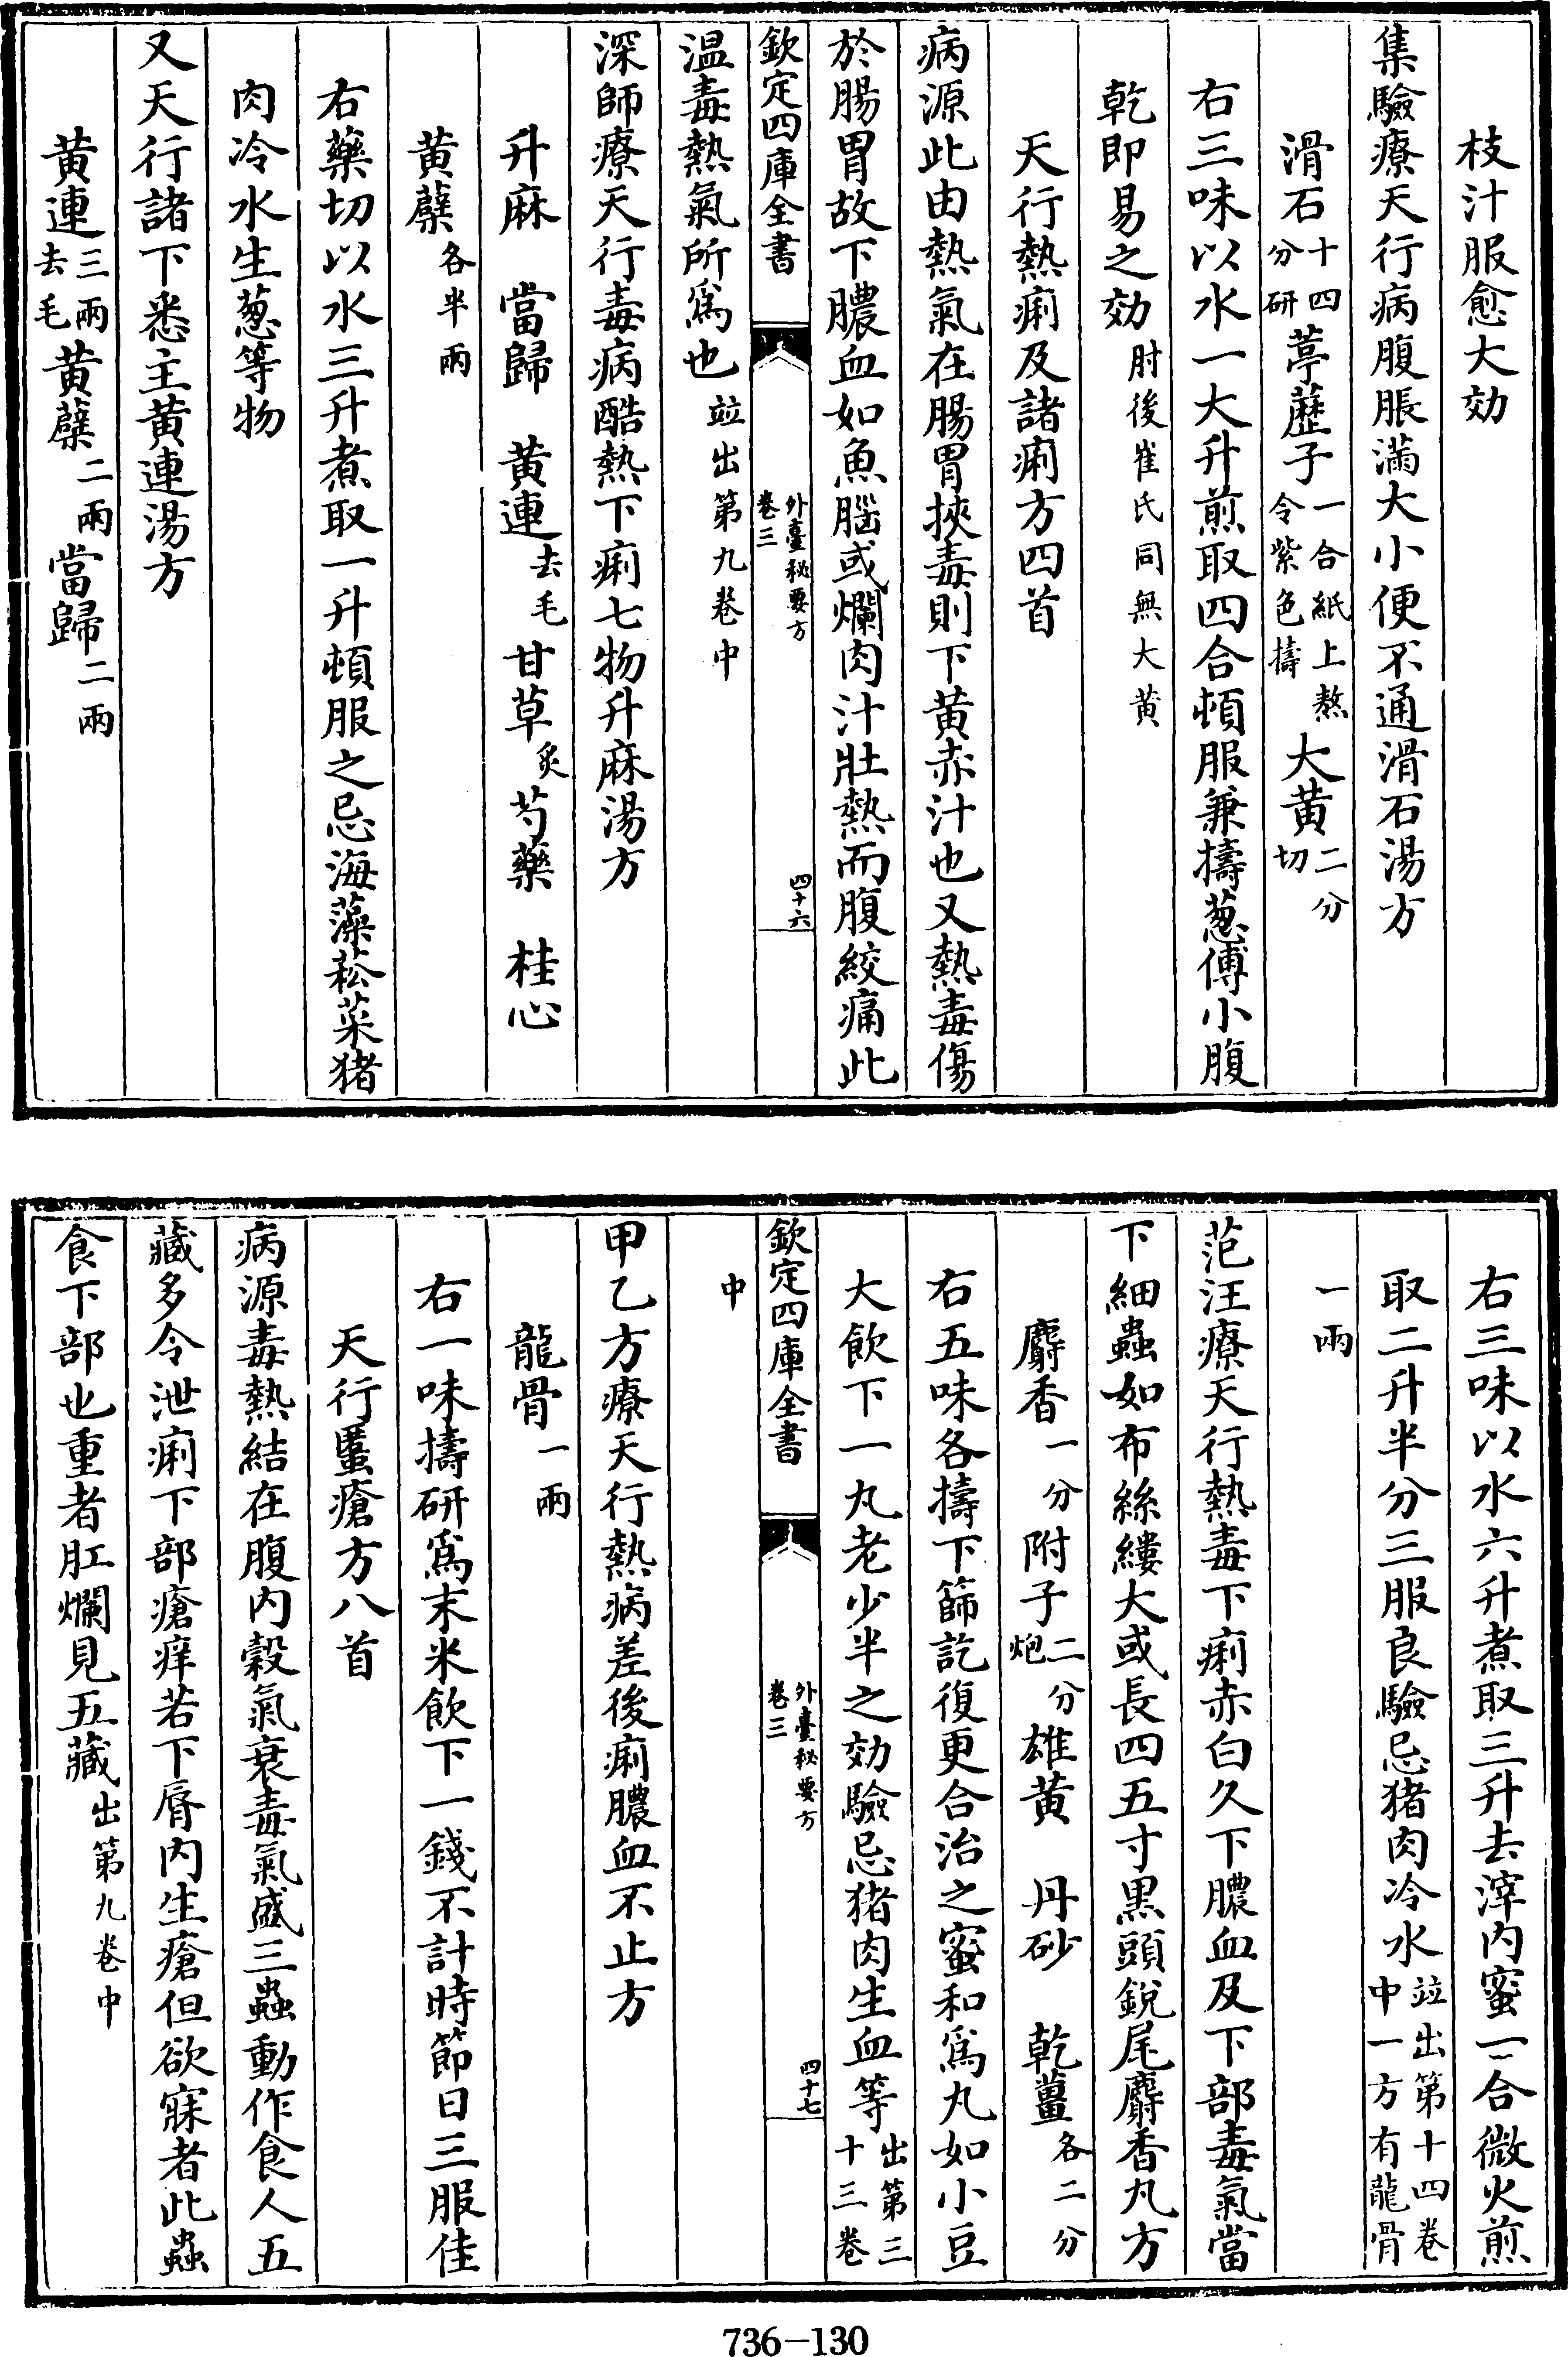 枝汁服愈大効
集驗療天行病腹脹滿大小便不通滑石湯方
滑石十四分研葶藶子一合紙上熬令紫色擣大黄二分切
右三味以水一大升煎取四合頓服兼擣葱傅小腹
乾即易之効肘後崔氏同無大黄
天行熱痢及諸痢方四首
病源此由熱氣在腸胃挾毒則下黄赤汁也又熱毒傷
於腸胃故下膿血如魚腦或爛肉汁壯熱而腹絞痛此
欽定四庫全書 外臺秘要方卷三 四十六
温毒熱氣所爲也竝出第九卷中
深師療天行毒病酷熱下痢七物升麻湯方
升麻 當歸 黄連去毛甘草炙芍藥 桂心
黄蘗各半兩
右藥切以水三升煮取一升頓服之忌海藻菘菜猪
肉冷水生葱等物
又天行諸下悉主黄連湯方
黄連三兩去毛黄蘗二兩當歸二兩
右三味以水六升煮取三升去滓内蜜一合微火煎
取二升半分三服良驗忌猪肉冷水竝出第十四卷中一方有龍骨
一兩
范汪療天行熱毒下痢赤白久下膿血及下部毒氣當
下細蟲如布絲縷大或長四五寸黒頭鋭尾麝香丸方
麝香一分附子二分炮雄黄 丹砂 乾薑各二分
右五味各擣下篩訖復更合治之蜜和爲丸如小豆
大飲下一丸老少半之効驗忌猪肉生血等出第三十三卷
欽定四庫全書 外臺秘要方卷三 四十七
中
甲乙方療天行熱病差後痢膿血不止方
龍骨一兩
右一味擣研爲末米飲下一錢不計時節日三服佳
天行䘌瘡方八首
病源毒熱結在腹内穀氣衰毒氣盛三蟲動作食人五
藏多令泄痢下部瘡痒若下脣内生瘡但欲寐者此蟲
食下部也重者肛爛見五藏出第九卷中
736-130